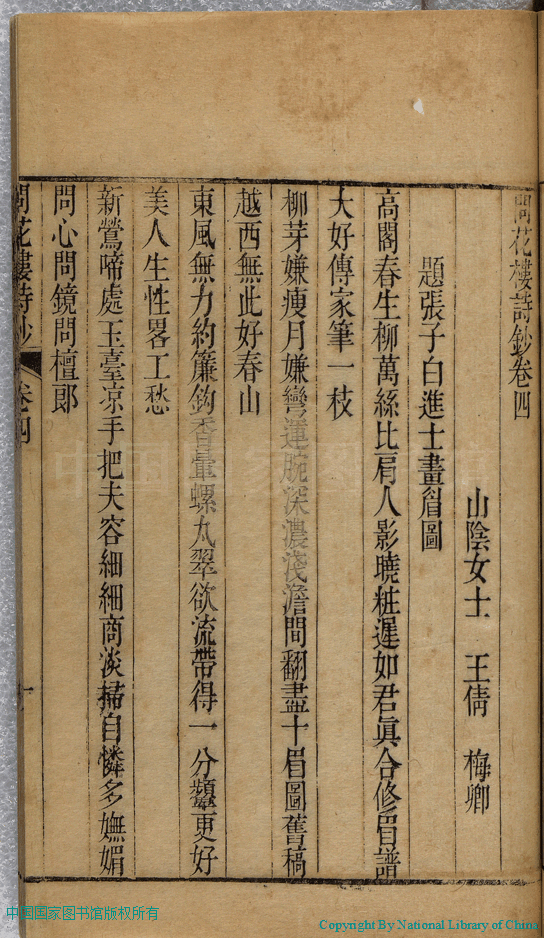 問花樓詩鈔卷四
山陰女士 王倩 梅卿
題張子白進士畫眉圖
高閣春生柳萬絲比肩人影曉粧遲如君真合修眉譜
大好傳家筆一枝
柳芽嫌瘦月嫌彎運腕深濃淺澹間翻盡十眉圖舊稿
越西無此好春山
東風無力約簾鉤香暈螺丸翠欲流帶得一分顰更好
美人生性畧工愁
新鶯啼處玉臺凉手把夫容細細商淡掃自憐多嫵媚
問心問鏡問檀郎
問花樓詩鈔 卷四 一
中国国家图书馆版权所有
Copyright By National Library of China